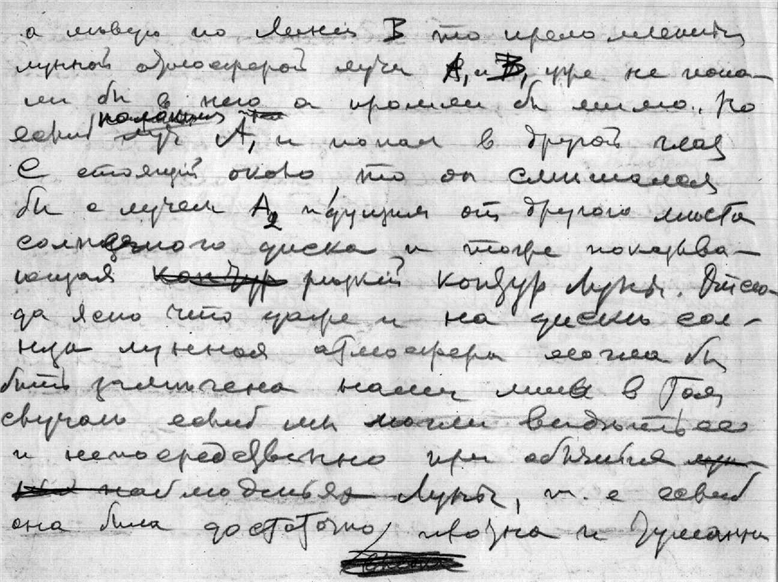 а ... по линии В то преломленные
лунной атмосферой лучи А, и В, уже не попа-
ли бы в него а прошли бы мимо. Но
еслиб луч А, и попал в другой глаз
С стоящий около то он смешался
бы с лучем А2 идущим от другого места
солнечного диска и тоже показыва-
ющая контур резкий контур Луны. Отсю-
да ясно что даже и на диске сол-
нца лунная атмосфера могла бы
быть замечена нами лишь в том
случае еслиб мы могли видеть ее
и непосредственно при
наблюдениях Луны, т. е еслиб
она была достаточно и туманна